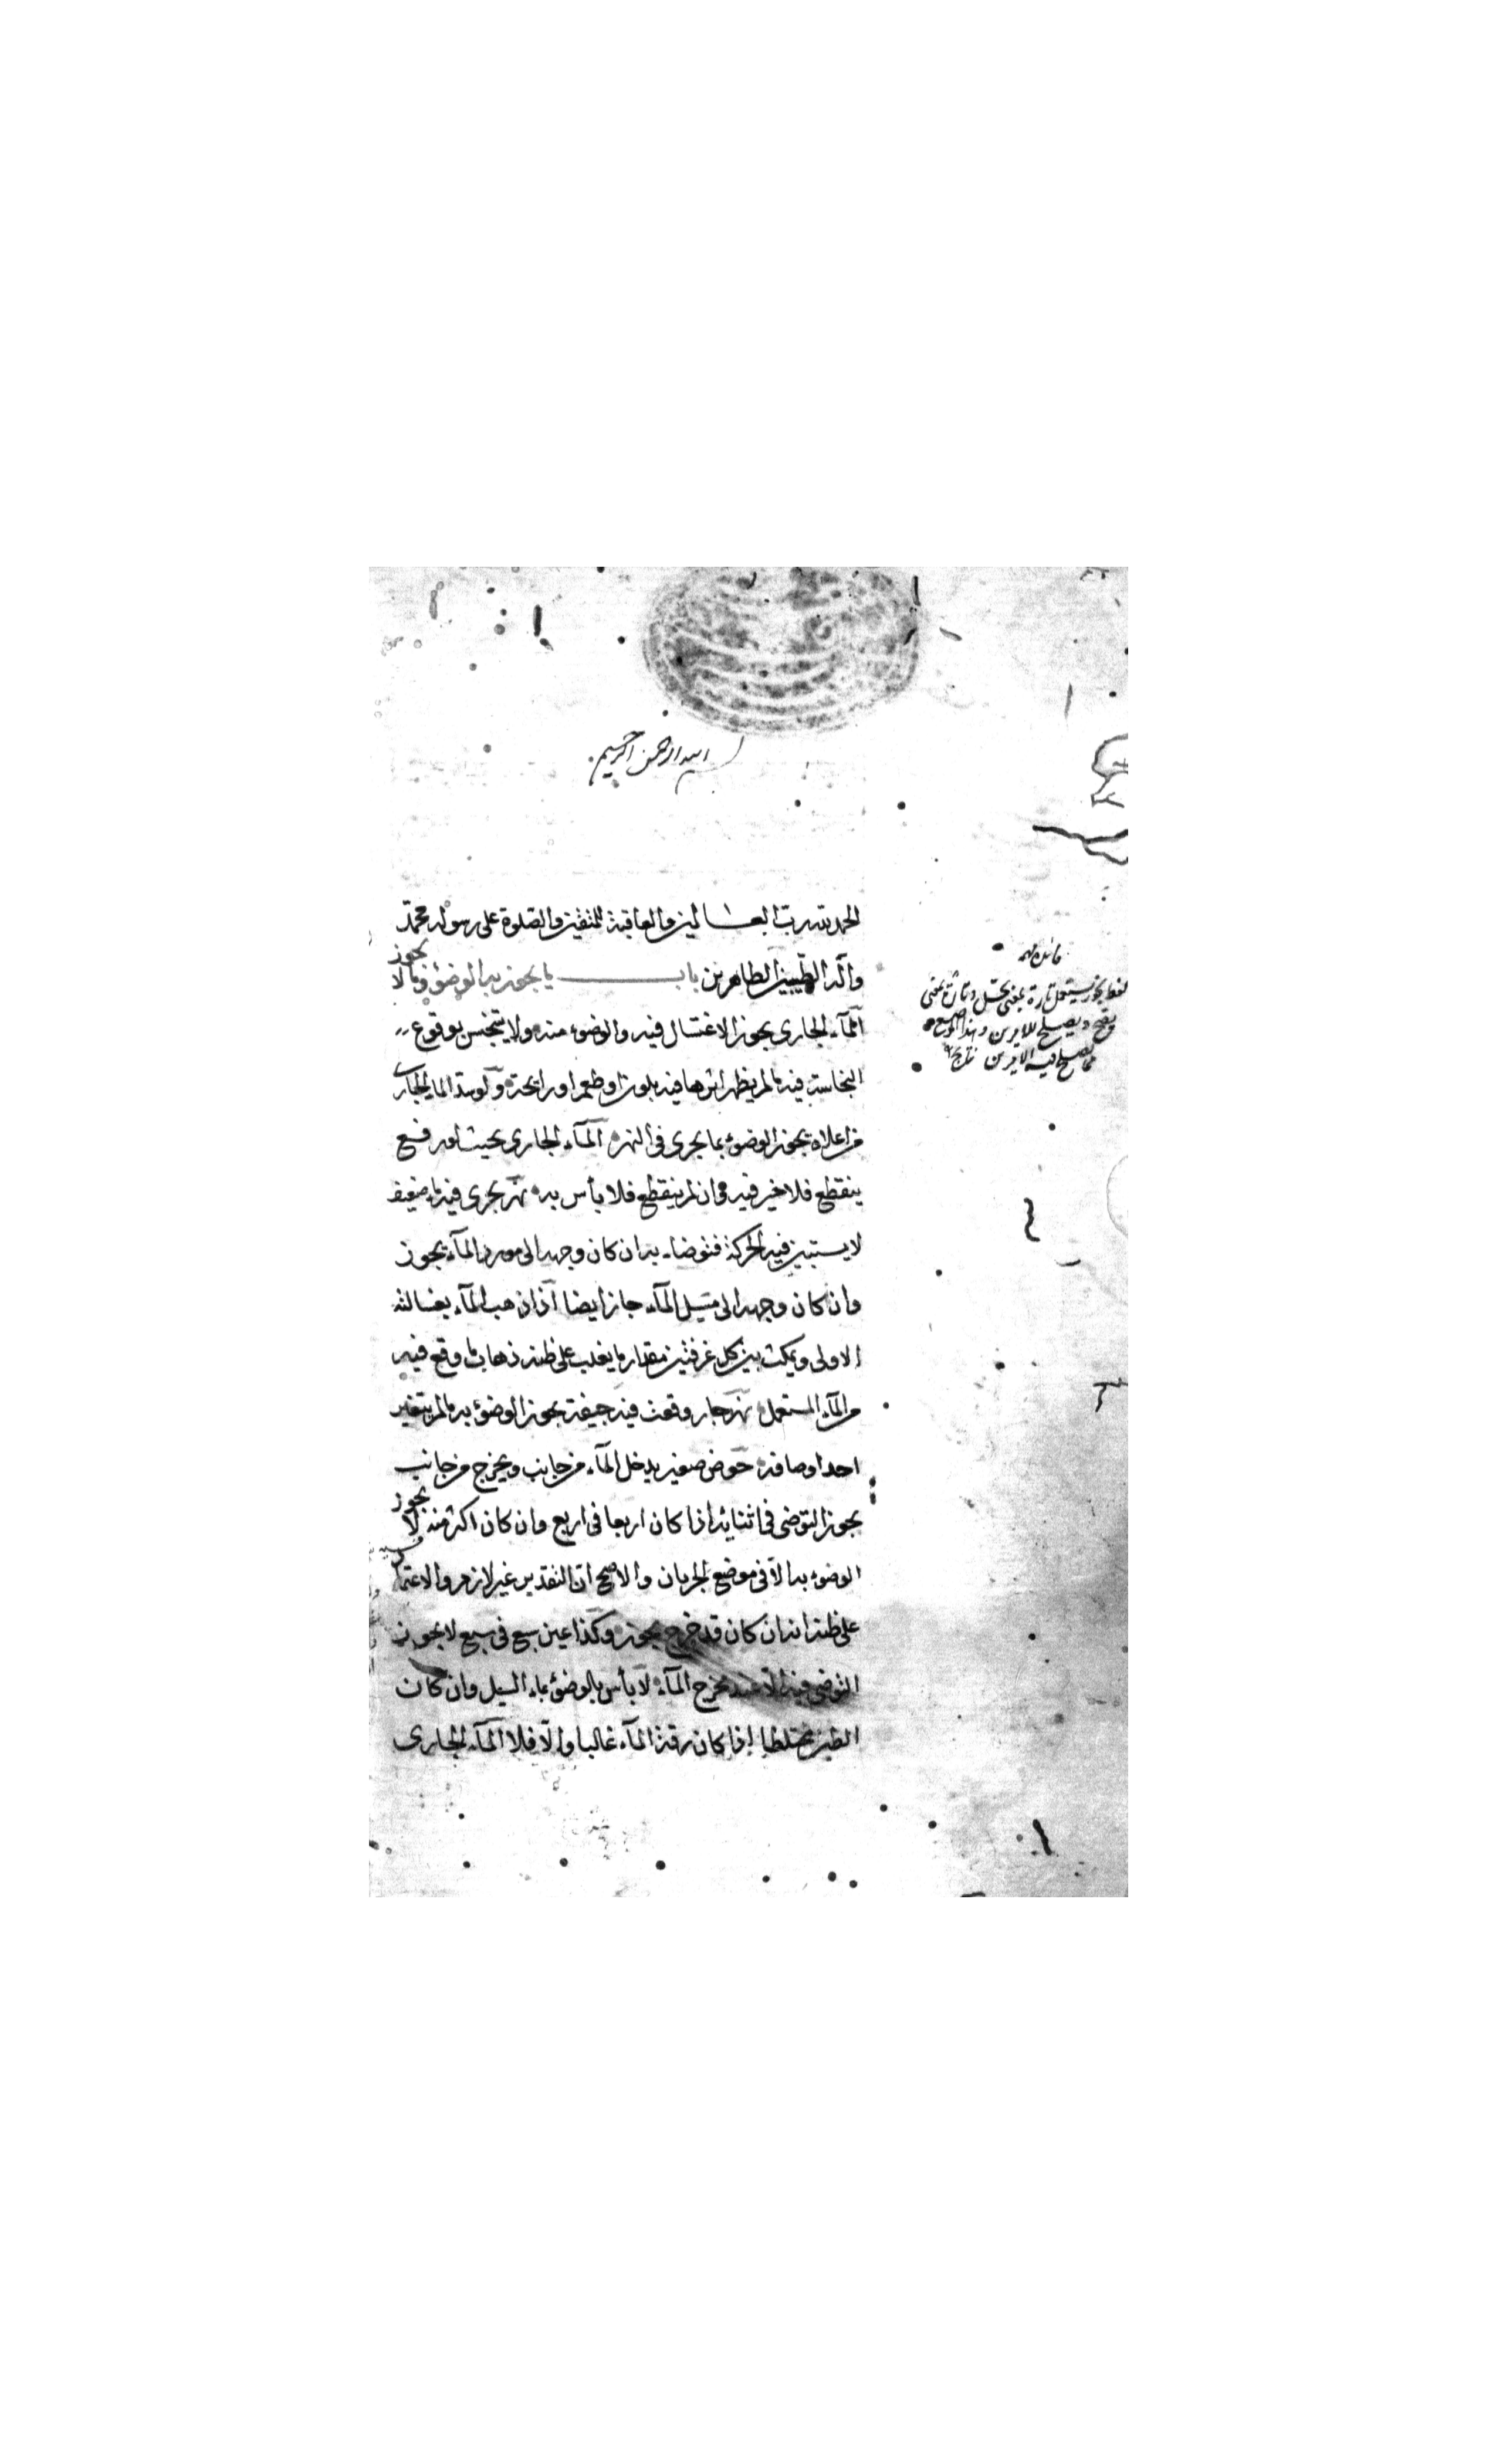 بسم الله الرحمن الرحيم
الحمد لله رب العالمين والعاقبة للمتقين والصلوة على رسوله محمد
وآله الطيبين الطاهرين باب ما يجوز به الوضوء وما لا يجوز
الماء الجارى يجوز الاغتسال فيه والوضوء منه ولا يتنجس بوقوع
النجاسة فيه ما لم يظهر اثرها فيه بلون او طعم او رايحة ولو سد الماء الجارى
من اعلاه يجوز الوضوء بما يجرى فى النهر الماء الجارى بحيث لو رفع
ينقطع فلا خير فيه وان لم ينقطع فلا بأس به نهر يجرى فيه ماء ضعيف
لا يستبين فيه الحركة فتوضاء به ان كان وجهه الى مورد الماء يجوز
وان كان وجهه الى مسيل الماء جاز ايضا اذا ذهب الماء بغسالته
الاولى ويمكث بين كل غرفتين مقدار ما يغلب على ظنه ذهاب ما وقع فيه
من الماء المستعمل نهر جار وقعت فيه جيفة يجوز الوضوء به ما لم يتغير
احد اوصافه حوض صغير يدخل الماء من جانب ويخرج من جانب
يجوز التوضى فى اثنائه اذا كان اربعا فى اربع وان كان اكثر منه لا يجوز
الوضوء به الا فى موضع الجريان والاصح ان التقدير غير لازم والاعتماد
على ظنه انه ان كان قد خرج يجوز وكذا عين سبع فى سبع لا يجوز
التوضى فيه الا عند مخرج الماء لا بأس بالوضوء بماء السيل وان كان
الطين مختلطا اذا كان رقة الماء غالبا والا فلا الماء الجارى
فائدة مهمة
لفظ يجوز يستعمل تارة بمعنى يحل وتارة بمعنى
يصح ويصلح للامرين وهذا الموضع
مما يصلح فيه الامرين